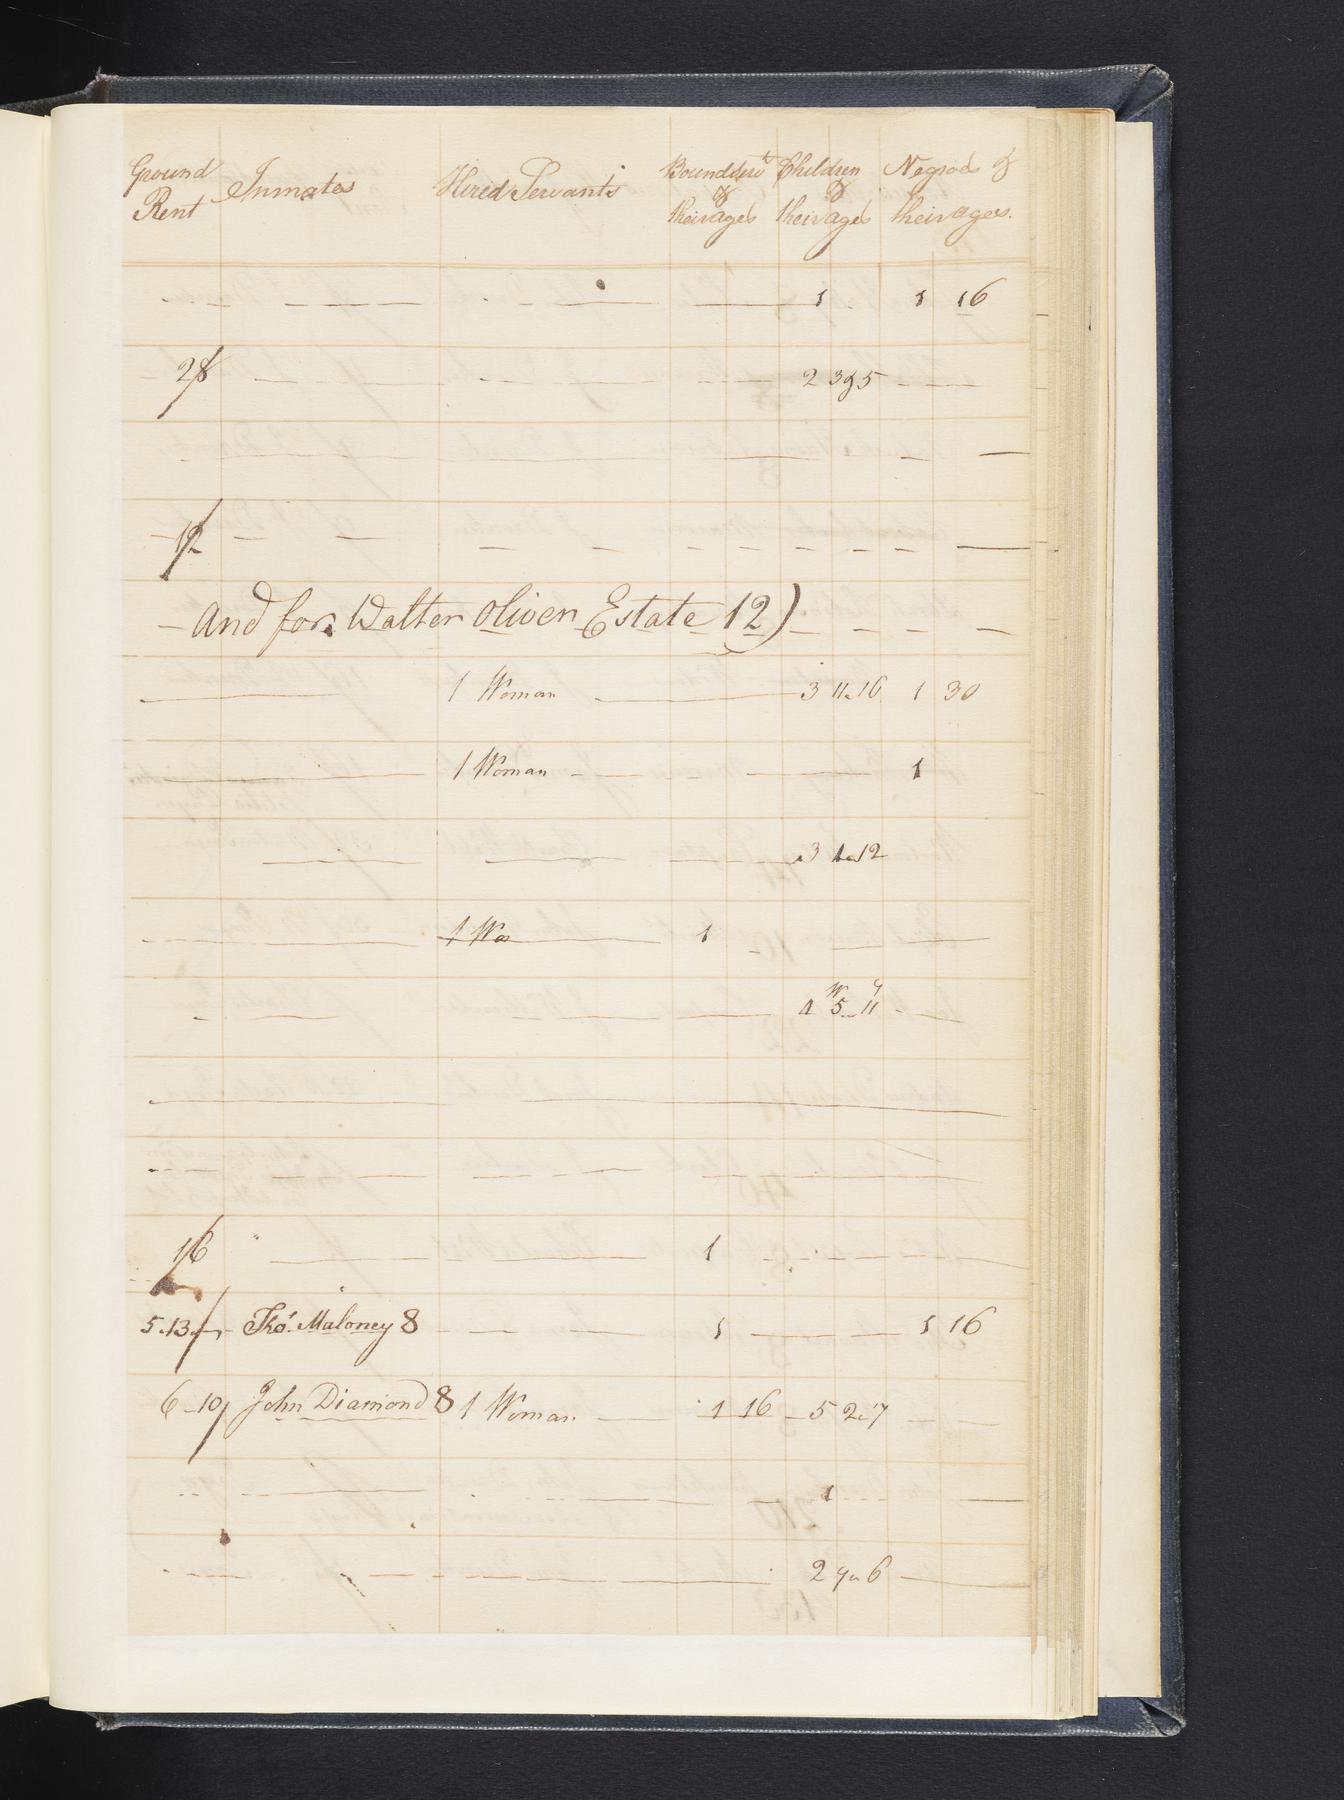 Ground Rent Inmates Hired Servants Boundserv.ts & their ages Children & their ages Negroes & their ages.
1 1 16
28/ 2 3 & 5
12/
And for Walter Oliver Estate 12)
1 Woman 3 11 16 1 30
1 Woman 1
3 12
1 Wo 1
4 5 11
16/ 1
5.13/ Tho.s Maloney 8 1 1 16
6 10/ John Diamond 8 1 Woman 1 16 5 2 7
1
2 6